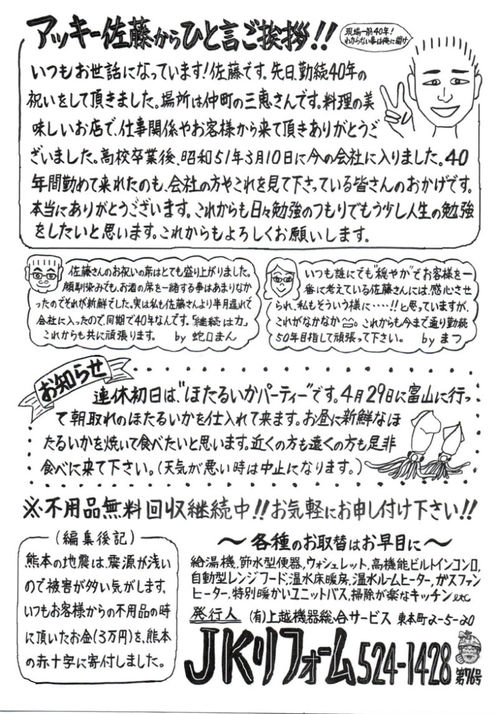 アッキー佐藤からひと言ご挨拶!!
現場一筋40年!
わからない事は俺に聞け!
いつもお世話になっています!佐藤です。先日、勤続40年の
祝いをして頂きました。場所は仲町の三恵さんです。料理の美
味しいお店で、仕事関係やお客様から来て頂きありがとうご
ざいました。高校卒業後、昭和51年3月10日に今の会社に入りました。40
年間勤めて来れたのも、会社の方やこれを見て下さっている皆さんのおかげです。
本当にありがとうございます。これからも日々勉強のつもりでもう少し人生の勉強
をしたいと思います。これからもよろしくお願いします。
佐藤さんのお祝いの席はとても盛り上がりました。
顔馴染みでも、お酒の席を一緒する事はあまりなか
ったのでそれが新鮮でした。実は私も佐藤さんより半月遅れで
会社に入ったので、同期で40年なんです。"継続は力"、
これからも共に頑張ります。 by 蛇口まん
いつも誰にでも"穏やか"でお客様を一
番に考えている佐藤さんには、感心させ
られ、私もそういう様に・・・・!!と思っていますが、
これがなかなか。これからも今まで通り勤続
50年目指して頑張って下さい。 by まつ
お知らせ
連休初日は、"ほたるいかパーティー"です。4月29日に富山に行っ
て朝取れのほたるいかを仕入れて来ます。お昼に新鮮なほ
たるいかを焼いて食べたいと思います。近くの方も遠くの方も是非
食べに来て下さい。(天気が悪い時は中止になります。)
※不用品無料回収継続中!!お気軽にお申し付け下さい!!
(編集後記)
熊本の地震は、震源が浅い
ので被害が多い気がします。
いつもお客様からの不用品の時
に頂いたお金(3万円)を、熊本
の赤十字に寄付しました。
～各種のお取替はお早目に～
給湯機、節水型便器、ウォシュレット、高機能ビルトインコンロ、
自動型レンジフード、温水床暖房、温水ルームヒーター、ガスファン
ヒーター、特別暖かいユニットバス、掃除が楽なキッチンetc
発行人 (有)上越機器総合サービス 東本町2-5-20
JKリフォーム 524-1428 第76号